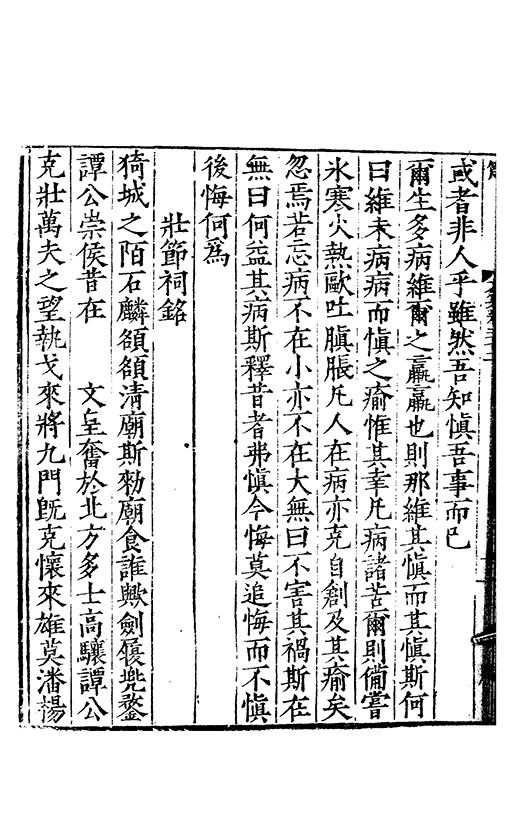 或者非人乎雖然吾知慎吾事而已
爾生多病維爾之羸羸也則那維其慎而其慎斯何
曰維未病病而慎之瘉惟其幸凡病諸苦爾則備嘗
氷寒火熱歐吐䐜脹凡人在病亦克自創及其瘉矣
忽焉若忘病不在小亦不在大無曰不害其禍斯在
無曰何益其病斯釋昔者弗慎今悔莫追悔而不慎
後悔何爲
壯節祠銘
猗城之陌石麟頟頟清廟斯勑廟食誰歟劍履兠鍪
譚公崇侯昔在　文皇奮於北方多士高驤譚公
克壯萬夫之望執戈來將九門旣克懷來雄莫潘楊